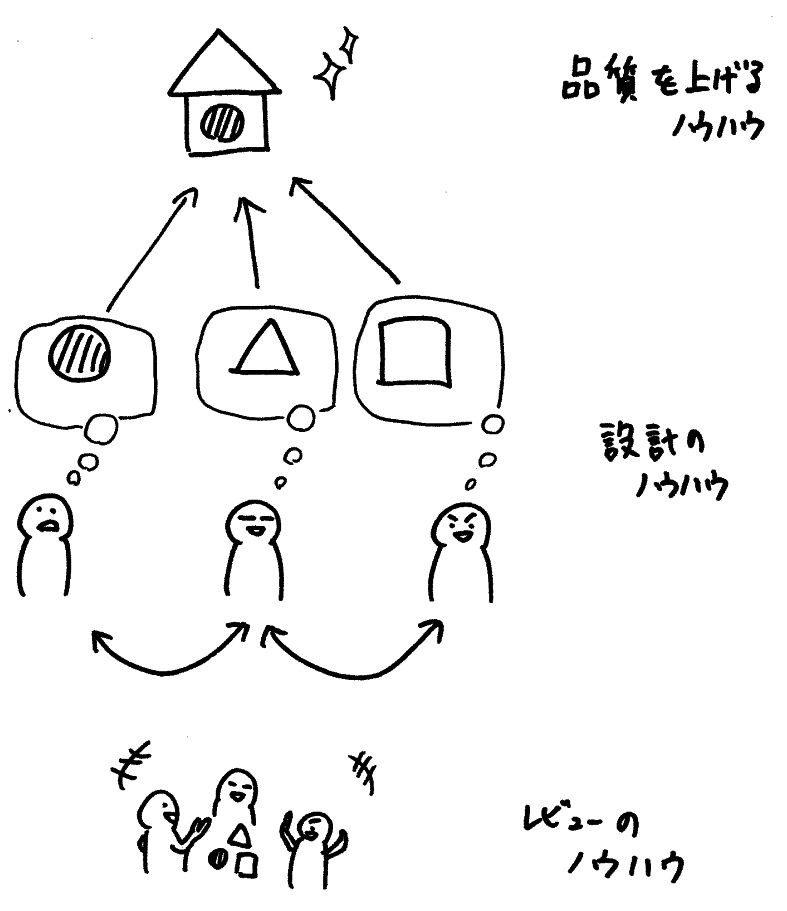 品質を上げる
ノウハウ
設計の
ノウハウ
レビューの
ノウハウ